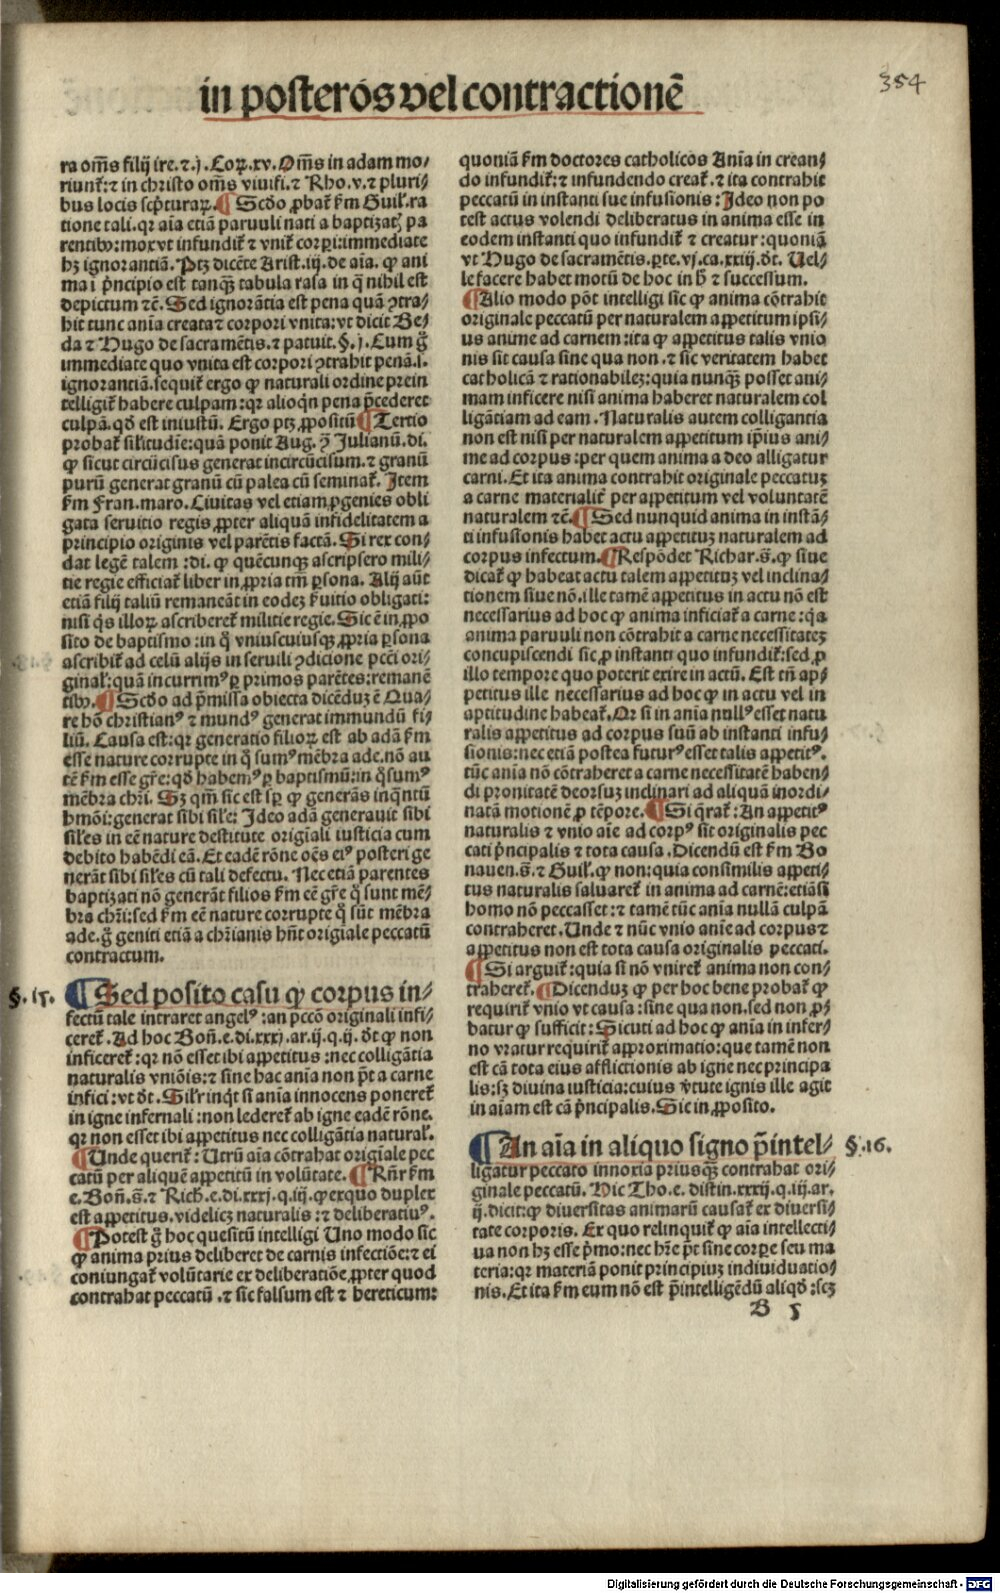 354
in posteros vel contractionē
ra om̄s filij ire.⁊.j.Coꝝ.xv.Om̄s in adam mo⸗
riunt᷑:⁊ in christo om̄s viuifi.⁊ Rho.v.⁊ pluri⸗
bus locis scp̄turaꝝ.¶ Scd̄o ꝓbat᷑ ẜm Guil̕.ra
tione tali.qꝛ aīa etiā paruuli nati a baptizatꝭ pa
rentibꝰ:mox vt infundit᷑ ⁊ vnit᷑ corpi:immediate
hꝫ ignorantiā.Ptꝫ dicēte Arist.iij.de aīa.ꝙ ani
ma ī p̄ncipio est tanqꝫ tabula rasa in q̄ nihil est
depictum ⁊c̄.Sed ignorātia est pena quā ↄtra⸗
hit tunc anīa creata ⁊ corpori vnita:vt dicit Be⸗
da ⁊ Hugo de sacramētis.⁊ patuit.§.j.Cum g̊
immediate quo vnita est corpori ↄtrahit penā.i.
ignorantiā.sequit᷑ ergo ꝙ naturali ordine prein
telligit᷑ habere culpam:qꝛ alioqͥn pena p̄cederet
culpā.qd̄ est iniustū.Ergo ptꝫ ꝓpositū ¶Tertio
probat᷑ sil̕itudīe:quā ponit Aug.ↄ̄ Julianū.di.
ꝙ sicut circūcisus generat incircūcisum.⁊ granū
purū generat granū cū palea cū seminat᷑.Item
ẜm Fran.maro.Ciuitas vel etiam ꝓgenies obli
gata seruitio regis ꝓpter aliquā infidelitatem a
principio originis vel parētis factā.Si rex con⸗
dat legē talem :di.ꝙ quēcunqꝫ ascripsero mili⸗
tie regie efficiat᷑ liber in ꝓpria tm̄ ꝑsona.Alij aūt
etiā filij taliū remaneāt in eodeꝫ ẜuitio obligati:
nisi qͥs illoꝝ ascriberet᷑ militie regie.Sic ē in ꝓpo
sito de baptismo:in q̊ vniuscuiusqꝫ ꝓpria ꝑsona
ascribit᷑ ad celū alijs in seruili ↄdicione pctī ori⸗
ginal̕:quā incurrimꝰ ꝑ primos parētes:remanē
tibꝰ.¶ Scd̄o ad p̄missa obiecta dicēduꝫ ē Qua⸗
re hō christianꝰ ⁊ mundꝰ generat immundū fi⸗
liū.Causa est:qꝛ generatio filioꝝ est ab adā ẜm
esse nature corrupte in q̊ sumꝰ mēbra ade.nō au
tē ẜm esse gr̄e:qd̄ habemꝰ ꝑ baptismū:in q̊ sumꝰ
mēbra chri̅.Sꝫ qm̄ sic est sꝑ ꝙ generās inqͣntū
hmōi:generat sibi sil̕e:Ideo adā generauit sibi
sil̕es in eē nature destitute origiali iusticia cum
debito habēdi eā.Et eadē rōne oēs eiꝰ posteri ge
nerāt sibi sil̕es cū tali defectu.Nec etiā parentes
baptizati nō generāt filios ẜm eē gr̄e q̊ sunt mē⸗
bra chri̅:sed ẜm eē nature corrupte q̊ sūt mēbra
ade.g̊ geniti etiā a chri̅anis hn̄t origiale peccatū
contractum.
§.15. ¶Sed posito casu ꝙ corpus in⸗
fectū tale intraret angelꝰ:an pccō originali infi⸗
ceret᷑.Ad hoc Bon̄.e.di.xxxj.ar.ij.q.ij.dt̄ ꝙ non
inficeret᷑:qꝛ nō esset ibi appetitus :nec colligātia
naturalis vniōis:⁊ sine hac anīa non p̄t a carne
infici:vt dt̄.Sil̕r inqͥt si anīa innocens poneret᷑
in igne infernali:non lederet᷑ ab igne eadē rōne.
qꝛ non esset ibi appetitus nec colligātia natural̕.
¶Unde querit᷑:Utrū aīa cōtrahat origiale pec
catū per aliquē appetitū in volūtate.¶Rn̄r ẜm
e.Bon̄.s̄.⁊ Rich.e.di.xxxj.q.iij.ꝙ ex quo duplex
est appetitus.videlicꝫ naturalis:⁊ deliberatiuꝰ.
¶Potest g̊ hoc quesitū intelligi Uno modo sic
ꝙ anima prius deliberet de carnis infectiōe:⁊ ei
coniungat᷑ volūtarie ex deliberatiōe ꝓpter quod
contrahat peccatū.⁊ sic falsum est ⁊ hereticum:
quoniā ẜm doctores catholicos Anīa in crean⸗
do infundit᷑:⁊ infundendo creat᷑.⁊ ita contrahit
peccatū in instanti sue infusionis:Ideo non po
test actus volendi deliberatus in anima esse in
eodem instanti quo infundit᷑ ⁊ creatur:quoniā
vt Hugo de sacramētis.ꝑte.vj.ca.xxiij.dt̄.Uel⸗
le facere habet motū de hoc in h̄ ⁊ successum.
¶Alio modo pōt intelligi sic ꝙ anima cōtrahit
originale peccatū per naturalem appetitum ipsi⸗
us anime ad carnem:ita ꝙ appetitus talis vnio
nis sit causa sine qua non.⁊ sic veritatem habet
catholicā ⁊ rationabileꝫ:quia nunqꝫ posset ani⸗
mam inficere nisi anima haberet naturalem col
ligātiam ad eam.Naturalis autem colligantia
non est nisi per naturalem appetitum ip̄ius ani⸗
me ad corpus:per quem anima a deo alligatur
carni.Et ita anima contrahit originale peccatuꝫ
a carne materialit᷑ per appetitum vel voluntatē
naturalem ⁊c̄.¶Sed nunquid anima in instā⸗
ti infusionis habet actu appetituꝫ naturalem ad
corpus infectum.¶Respōdet Richar.s̄.ꝙ siue
dicat᷑ ꝙ habeat actu talem appetituꝫ vel inclina⸗
tionem siue nō.ille tamē appetitus in actu nō est
necessarius ad hoc ꝙ anima inficiat᷑ a carne:qͣa
anima paruuli non cōtrahit a carne necessitateꝫ
concupiscendi sic ꝓ instanti quo infundit᷑:sed ꝓ
illo tempore quo poterit exire in actū.Est tn̄ ap⸗
petitus ille necessarius ad hoc ꝙ in actu vel in
aptitudine habeat᷑.Qꝛ si in anīa nullꝰ esset natu
ralis appetitus ad corpus suū ab instanti infu⸗
sionis:nec etiā postea futurꝰ esset talis appetitꝰ.
tūc anīa nō cōtraheret a carne necessitatē haben⸗
di pronitatē deorsuꝫ inclinari ad aliquā inordi⸗
natā motionē ꝓ tēpore.¶Si qͣrat᷑:An appetitꝰ
naturalis ⁊ vnio aīe ad corpꝰ sit originalis pec
cati p̄ncipalis ⁊ tota causa.Dicendū est ẜm Bo
nauen.s̄.⁊ Guil̕.ꝙ non:quia consimilis appeti⸗
tus naturalis saluaret᷑ in anima ad carnē:etiāsi
homo nō peccasset:⁊ tamē tūc anīa nullā culpā
contraheret.Unde ⁊ nūc vnio anīe ad corpus ⁊
appetitus non est tota causa originalis peccati.
¶Si arguit᷑:quia si nō vniret᷑ anima non con⸗
traheret᷑.¶Dicenduꝫ ꝙ per hoc bene probat᷑ ꝙ
requirit᷑ vnio vt causa:sine qua non.sed non ꝓ⸗
batur ꝙ sufficit:Sicuti ad hoc ꝙ anīa in infer⸗
no vratur requirit᷑ approximatio:que tamē non
est cā tota eius afflictionis ab igne nec principa
lis:sꝫ diuina iusticia:cuius v̓tute ignis ille agit
in aīam est cā p̄ncipalis.Sic in ꝓposito.
¶An aīa in aliquo signo p̄intel⸗ §.16.
ligatur peccato innoxia priusqꝫ contrahat ori⸗
ginale peccatū.Hic Tho.e.distin.xxxij.q.iij.ar.
ij.dicit:ꝙ diuersitas animarū causat᷑ ex diuersi⸗
tate corporis.Ex quo relinquit᷑ ꝙ aīa intellecti⸗
ua non hꝫ esse p̄mo:nec hr̄e p̄t sine corꝑe seu ma
teria:qꝛ materiā ponit principiuꝫ indiuiduatio⸗
nis.Et ita ẜm eum nō est p̄intelligēdū aliqd̄:scꝫ
B 5
Digitalisierung gefördert durch die Deutsche Forschungsgemeinschaft - DFG